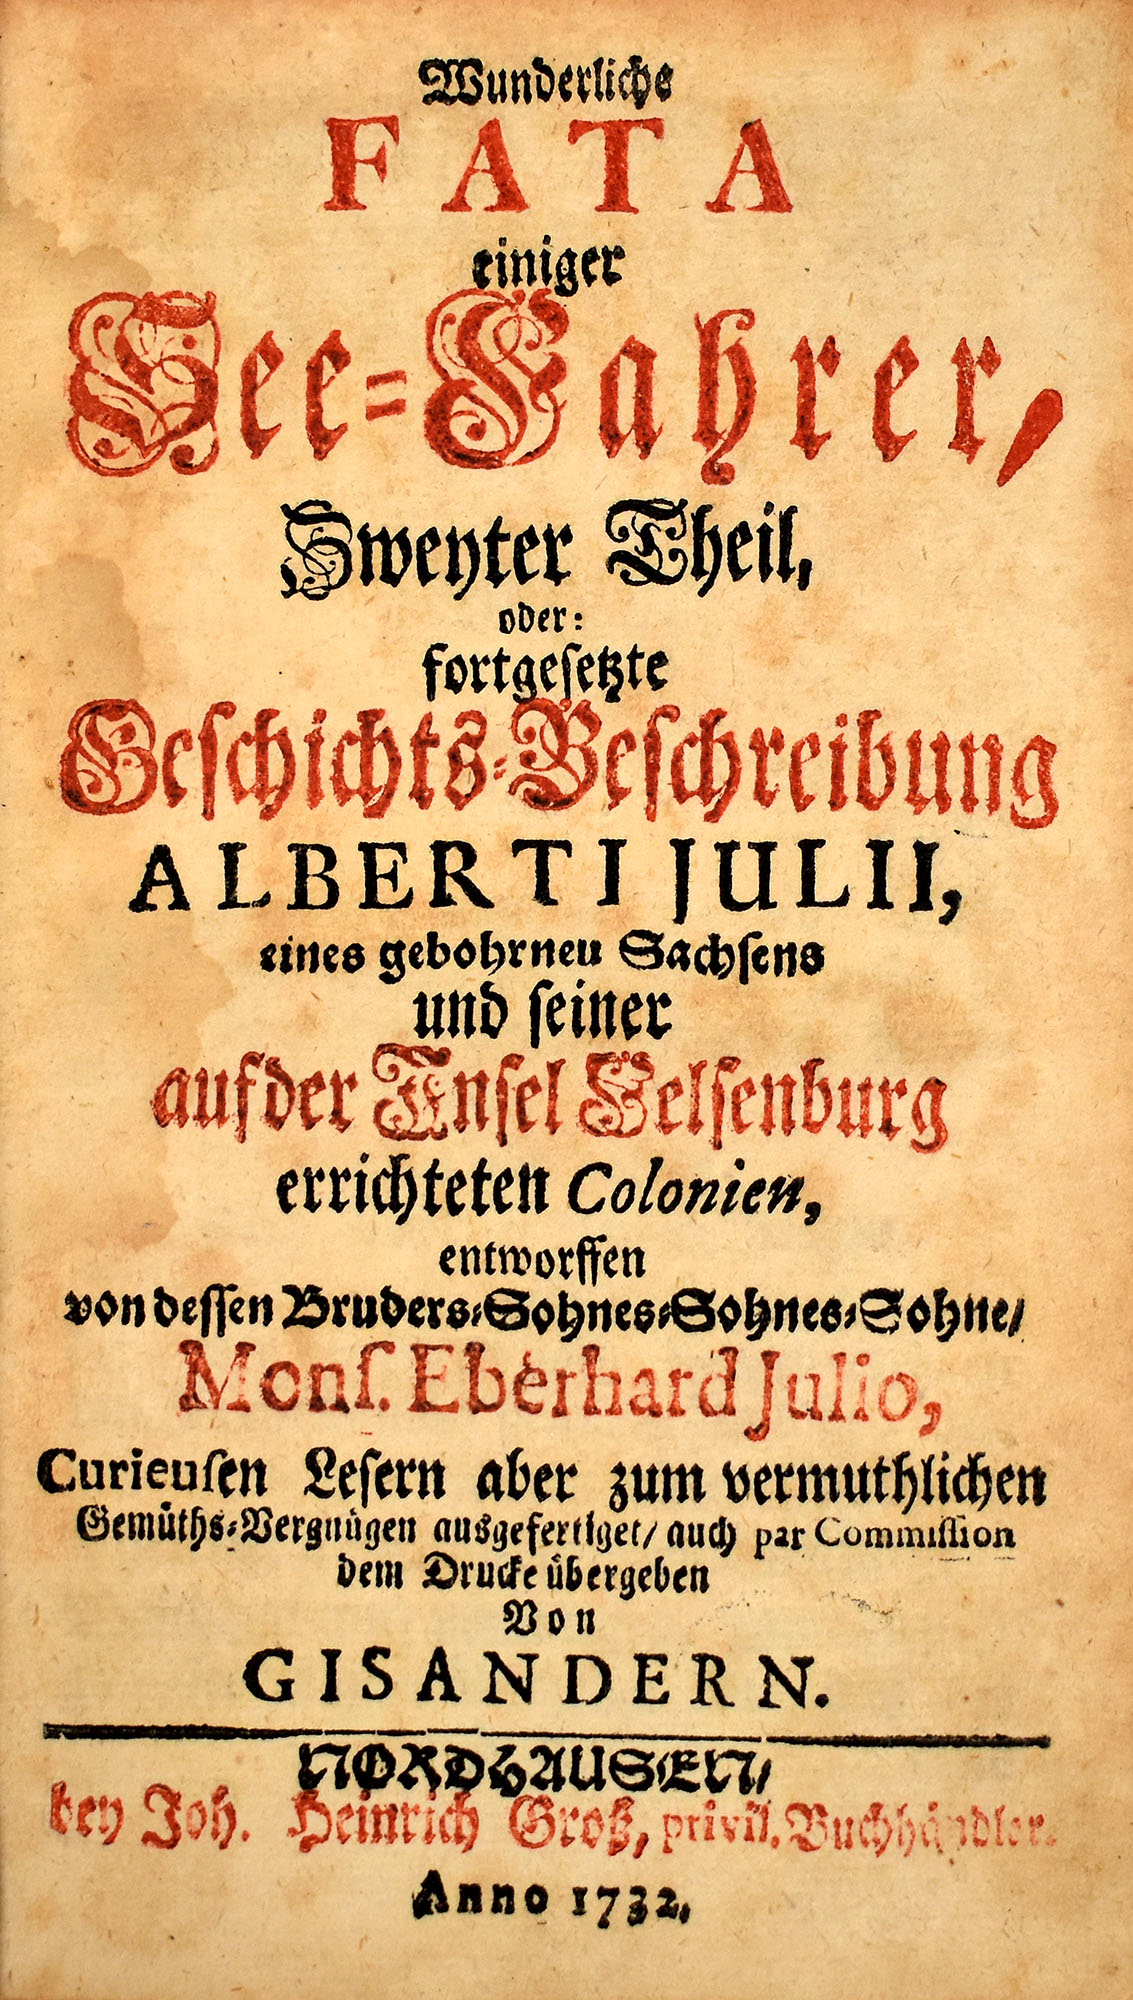 Wunderliche
FATA
einiger
See-Fahrer,
Zweyter Theil,
oder:
fortgesetzte
Geschichts-Beschreibung
ALBERTI JULII,
eines gebohrneu Sachsens
und seiner
auf der Insel Felsenburg
errichteten Colonien,
entworffen
von dessen Bruders-Sohnes-Sohnes-Sohne/
Monſ. Eberhard Julio,
Curieusen Lesern aber zum vermuthlichen
Gemüths-Vergnügen ausgefertiget/ auch par Commiſſion
dem Drucke übergeben
Von
GISANDERN.
NORDHAUSEN/
bey Joh. Heinrich Groß, privil. Buchhändler.
Anno 1732.